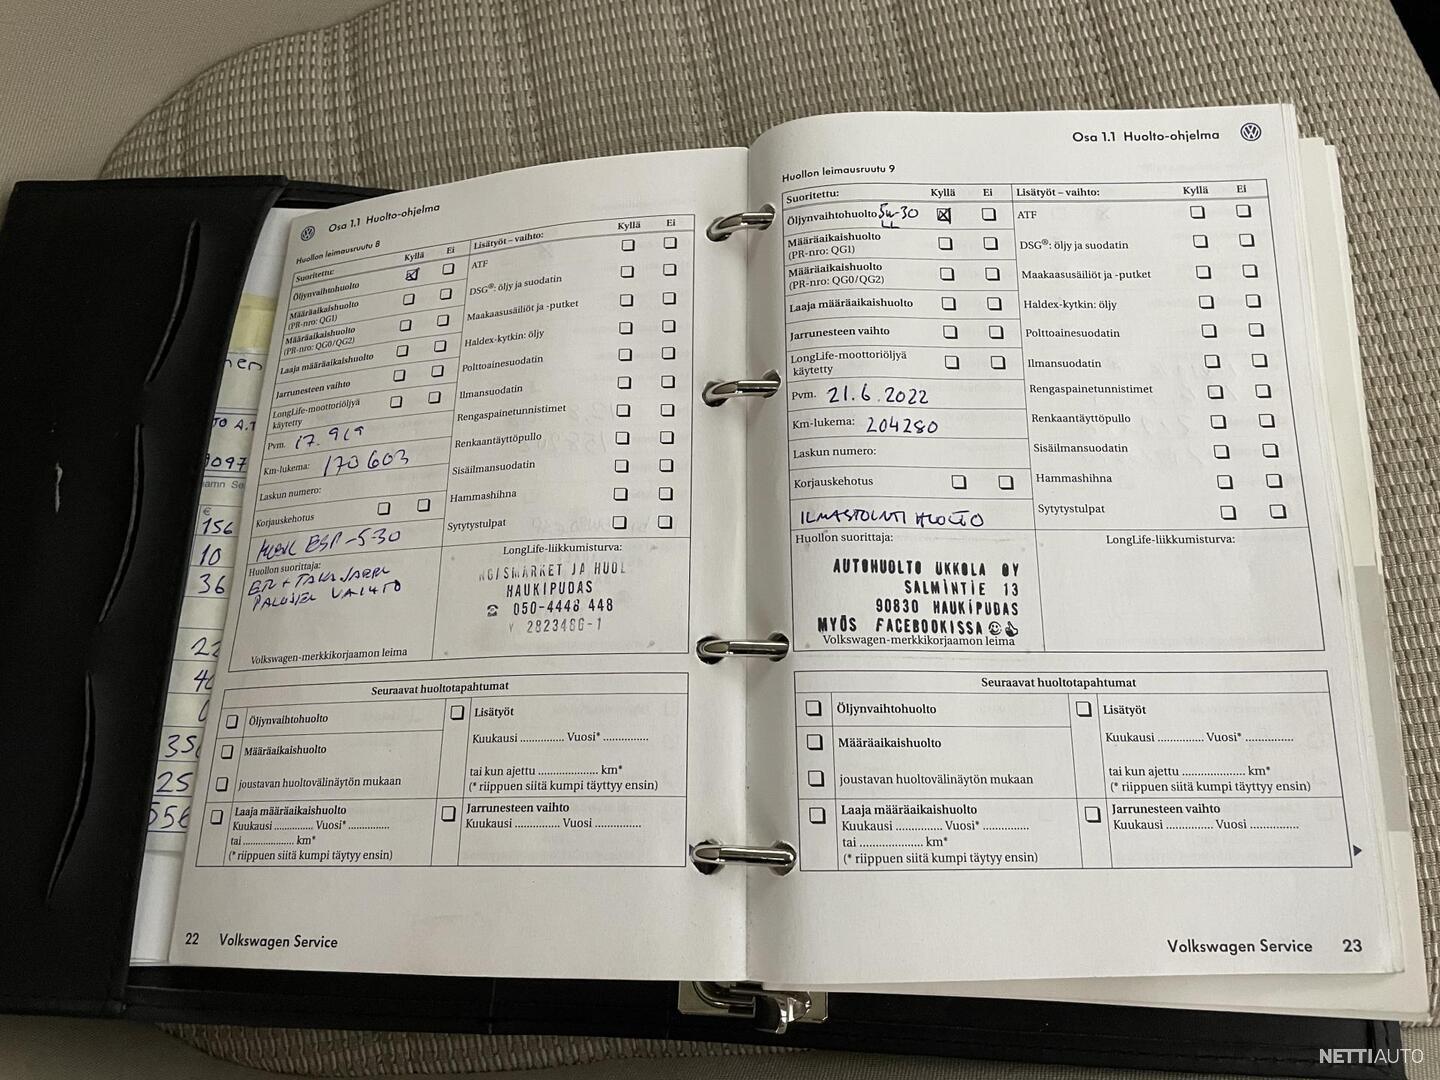 Osa 1.1 Huolto-ohjelma
Huollon leimausruutu 8
Suoritettu:
Kyllä
Ei
Lisätyöt – vaihto:
Kyllä
Ei
Öljynvaihtohuolto
ATF
Määräaikaishuolto
(PR-nro: QG1)
DSG®: öljy ja suodatin
Määräaikaishuolto
(PR-nro: QG0/QG2)
Maakaasusäiliöt ja -putket
Laaja määräaikaishuolto
Haldex-kytkin: öljy
Jarrunesteen vaihto
Polttoainesuodatin
LongLife-moottoriöljyä
käytetty
Ilmansuodatin
Pvm. 17.9/19
Rengaspainetunnistimet
Km-lukema: 170603
Renkaantäyttöpullo
Laskun numero:
Sisäilmansuodatin
Korjauskehotus
Hammashihna
Sytytystulpat
ESP -5-30
Huollon suorittaja:
ETU + TAKA JARRU
PALOJEN VAIHTO
LongLife-liikkumisturva:
JA HUOL
HAUKIPUDAS
☎ 050-4448 448
Y 2823486-1
Volkswagen-merkkikorjaamon leima
Seuraavat huoltotapahtumat
Öljynvaihtohuolto
Lisätyöt
Määräaikaishuolto
Kuukausi .............. Vuosi* ..............
joustavan huoltovälinäytön mukaan
tai kun ajettu .................... km*
(* riippuen siitä kumpi täytyy ensin)
Laaja määräaikaishuolto
Kuukausi ............. Vuosi* .............
tai ................. km*
(* riippuen siitä kumpi täytyy ensin)
Jarrunesteen vaihto
Kuukausi .............. Vuosi ..............
22 Volkswagen Service
nen
TO A.T
9097
€
156
10
36
22
40
35
25
556
Osa 1.1 Huolto-ohjelma
Huollon leimausruutu 9
Suoritettu:
Kyllä
Ei
Lisätyöt – vaihto:
Kyllä
Ei
Öljynvaihtohuolto 5w-30
LL
ATF
Määräaikaishuolto
(PR-nro: QG1)
DSG®: öljy ja suodatin
Määräaikaishuolto
(PR-nro: QG0/QG2)
Maakaasusäiliöt ja -putket
Laaja määräaikaishuolto
Haldex-kytkin: öljy
Jarrunesteen vaihto
Polttoainesuodatin
LongLife-moottoriöljyä
käytetty
Ilmansuodatin
Pvm. 21.6.2022
Rengaspainetunnistimet
Km-lukema: 204280
Renkaantäyttöpullo
Laskun numero:
Sisäilmansuodatin
Korjauskehotus
Hammashihna
ILMASTOINTI HUOLTO
Sytytystulpat
Huollon suorittaja:
LongLife-liikkumisturva:
AUTOHUOLTO UKKOLA OY
SALMINTIE 13
90830 HAUKIPUDAS
MYÖS FACEBOOKISSA
Volkswagen-merkkikorjaamon leima
Seuraavat huoltotapahtumat
Öljynvaihtohuolto
Lisätyöt
Määräaikaishuolto
Kuukausi .............. Vuosi* ..............
joustavan huoltovälinäytön mukaan
tai kun ajettu .................... km*
(* riippuen siitä kumpi täytyy ensin)
Laaja määräaikaishuolto
Kuukausi .............. Vuosi* ..............
tai .................... km*
(* riippuen siitä kumpi täytyy ensin)
Jarrunesteen vaihto
Kuukausi .............. Vuosi ..............
Volkswagen Service 23
NETTIAUTO